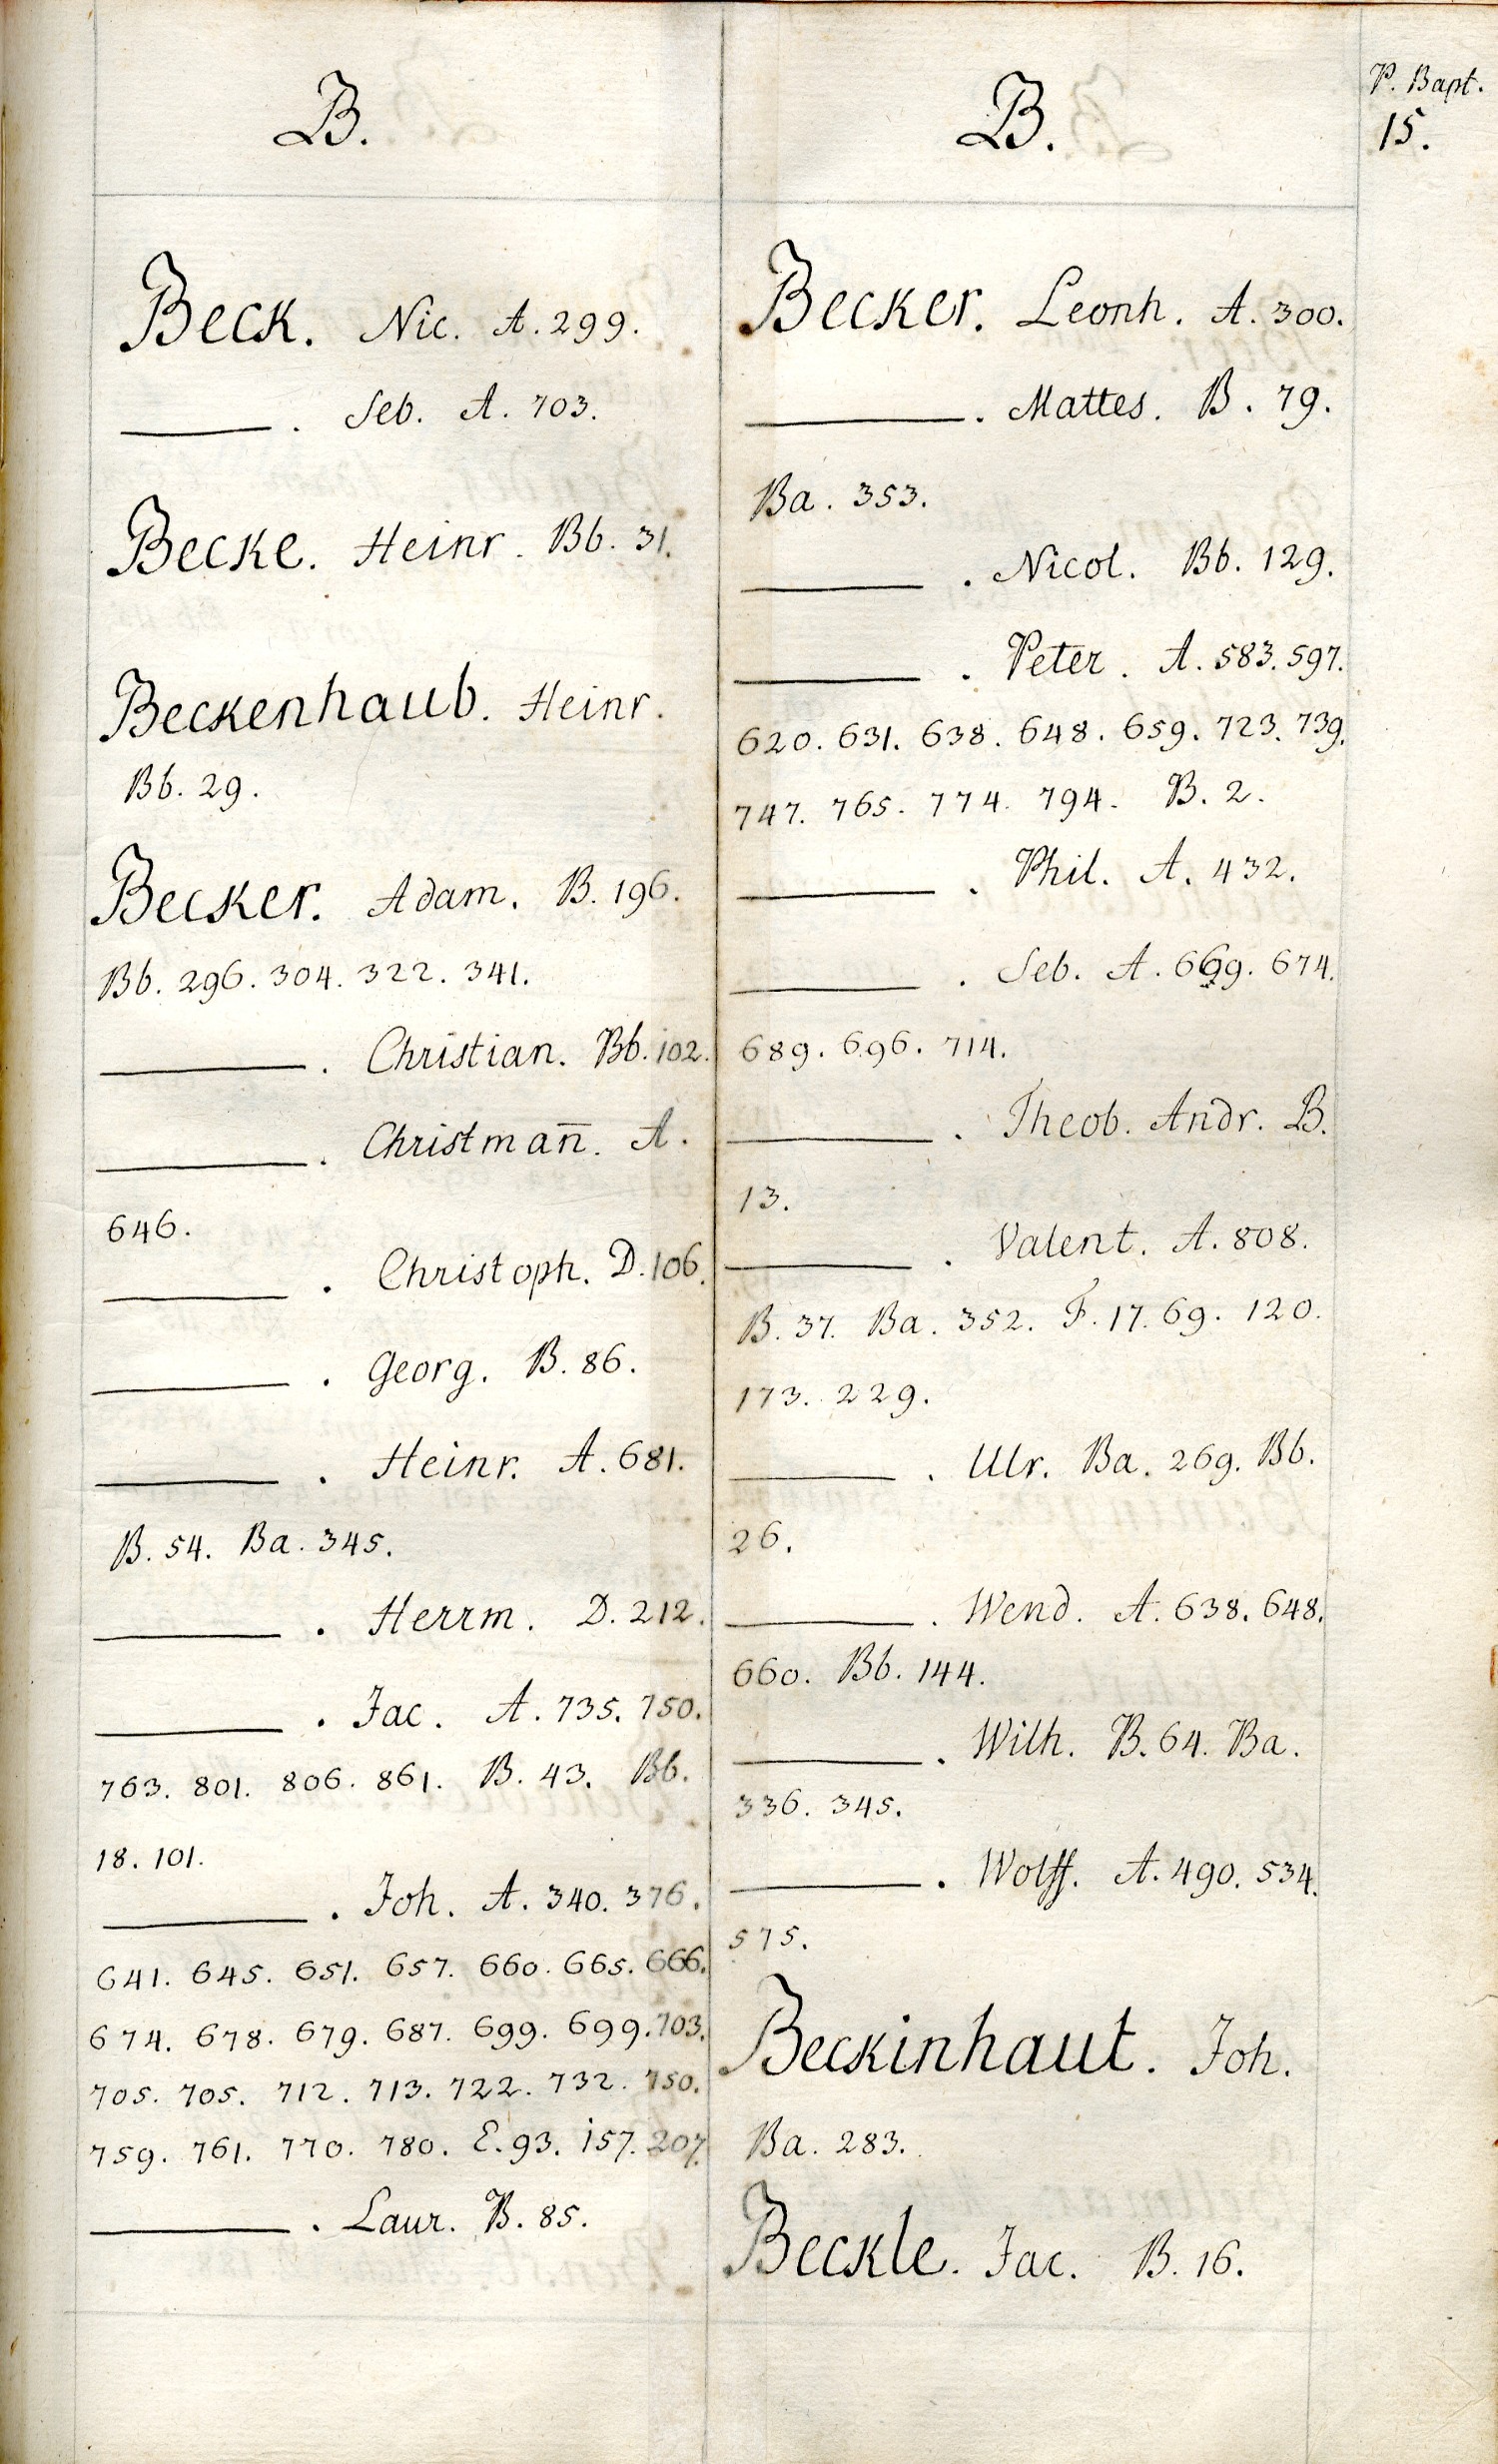 B.
Beck. Nic. A. 299.
———. Seb. A. 703.
Becke. Heinr. Bb. 31.
Beckenhaub. Heinr.
Bb. 29.
Becker. Adam. B. 196.
Bb. 296. 304. 322. 341.
———. Christian. Bb. 102.
———. Christman̄. A.
646.
———. Christoph. D. 106.
———. Georg. B. 86.
———. Heinr. A. 681.
B. 54. Ba. 345.
———. Herrm. D. 212.
———. Jac. A. 735. 750.
763. 801. 806. 861. B. 43. Bb.
18. 101.
———. Joh. A. 340. 376.
641. 645. 651. 657. 660. 665. 666.
674. 678. 679. 687. 699. 699. 703.
705. 705. 712. 713. 722. 732. 750.
759. 761. 770. 780. E. 93. 157. 207.
———. Laur. B. 85.
B.
Becker. Leonh. A. 300.
———. Mattes. B. 79.
Ba. 353.
———. Nicol. Bb. 129.
———. Peter. A. 583. 597.
620. 631. 638. 648. 659. 723. 739.
747. 765. 774. 794. B. 2.
———. Phil. A. 432.
———. Seb. A. 669. 674.
689. 696. 714.
———. Theob. Andr. B.
13.
———. Valent. A. 808.
B. 37. Ba. 352. F. 17. 69. 120.
173. 229.
———. Ulr. Ba. 269. Bb.
26.
———. Wend. A. 638. 648.
660. Bb. 144.
———. Wilh. B. 64. Ba.
336. 345.
———. Wolff. A. 490. 534.
575.
Beckinhaut. Joh.
Ba. 283.
Beckle. Jac. B. 16.
P. Bapt.
15.